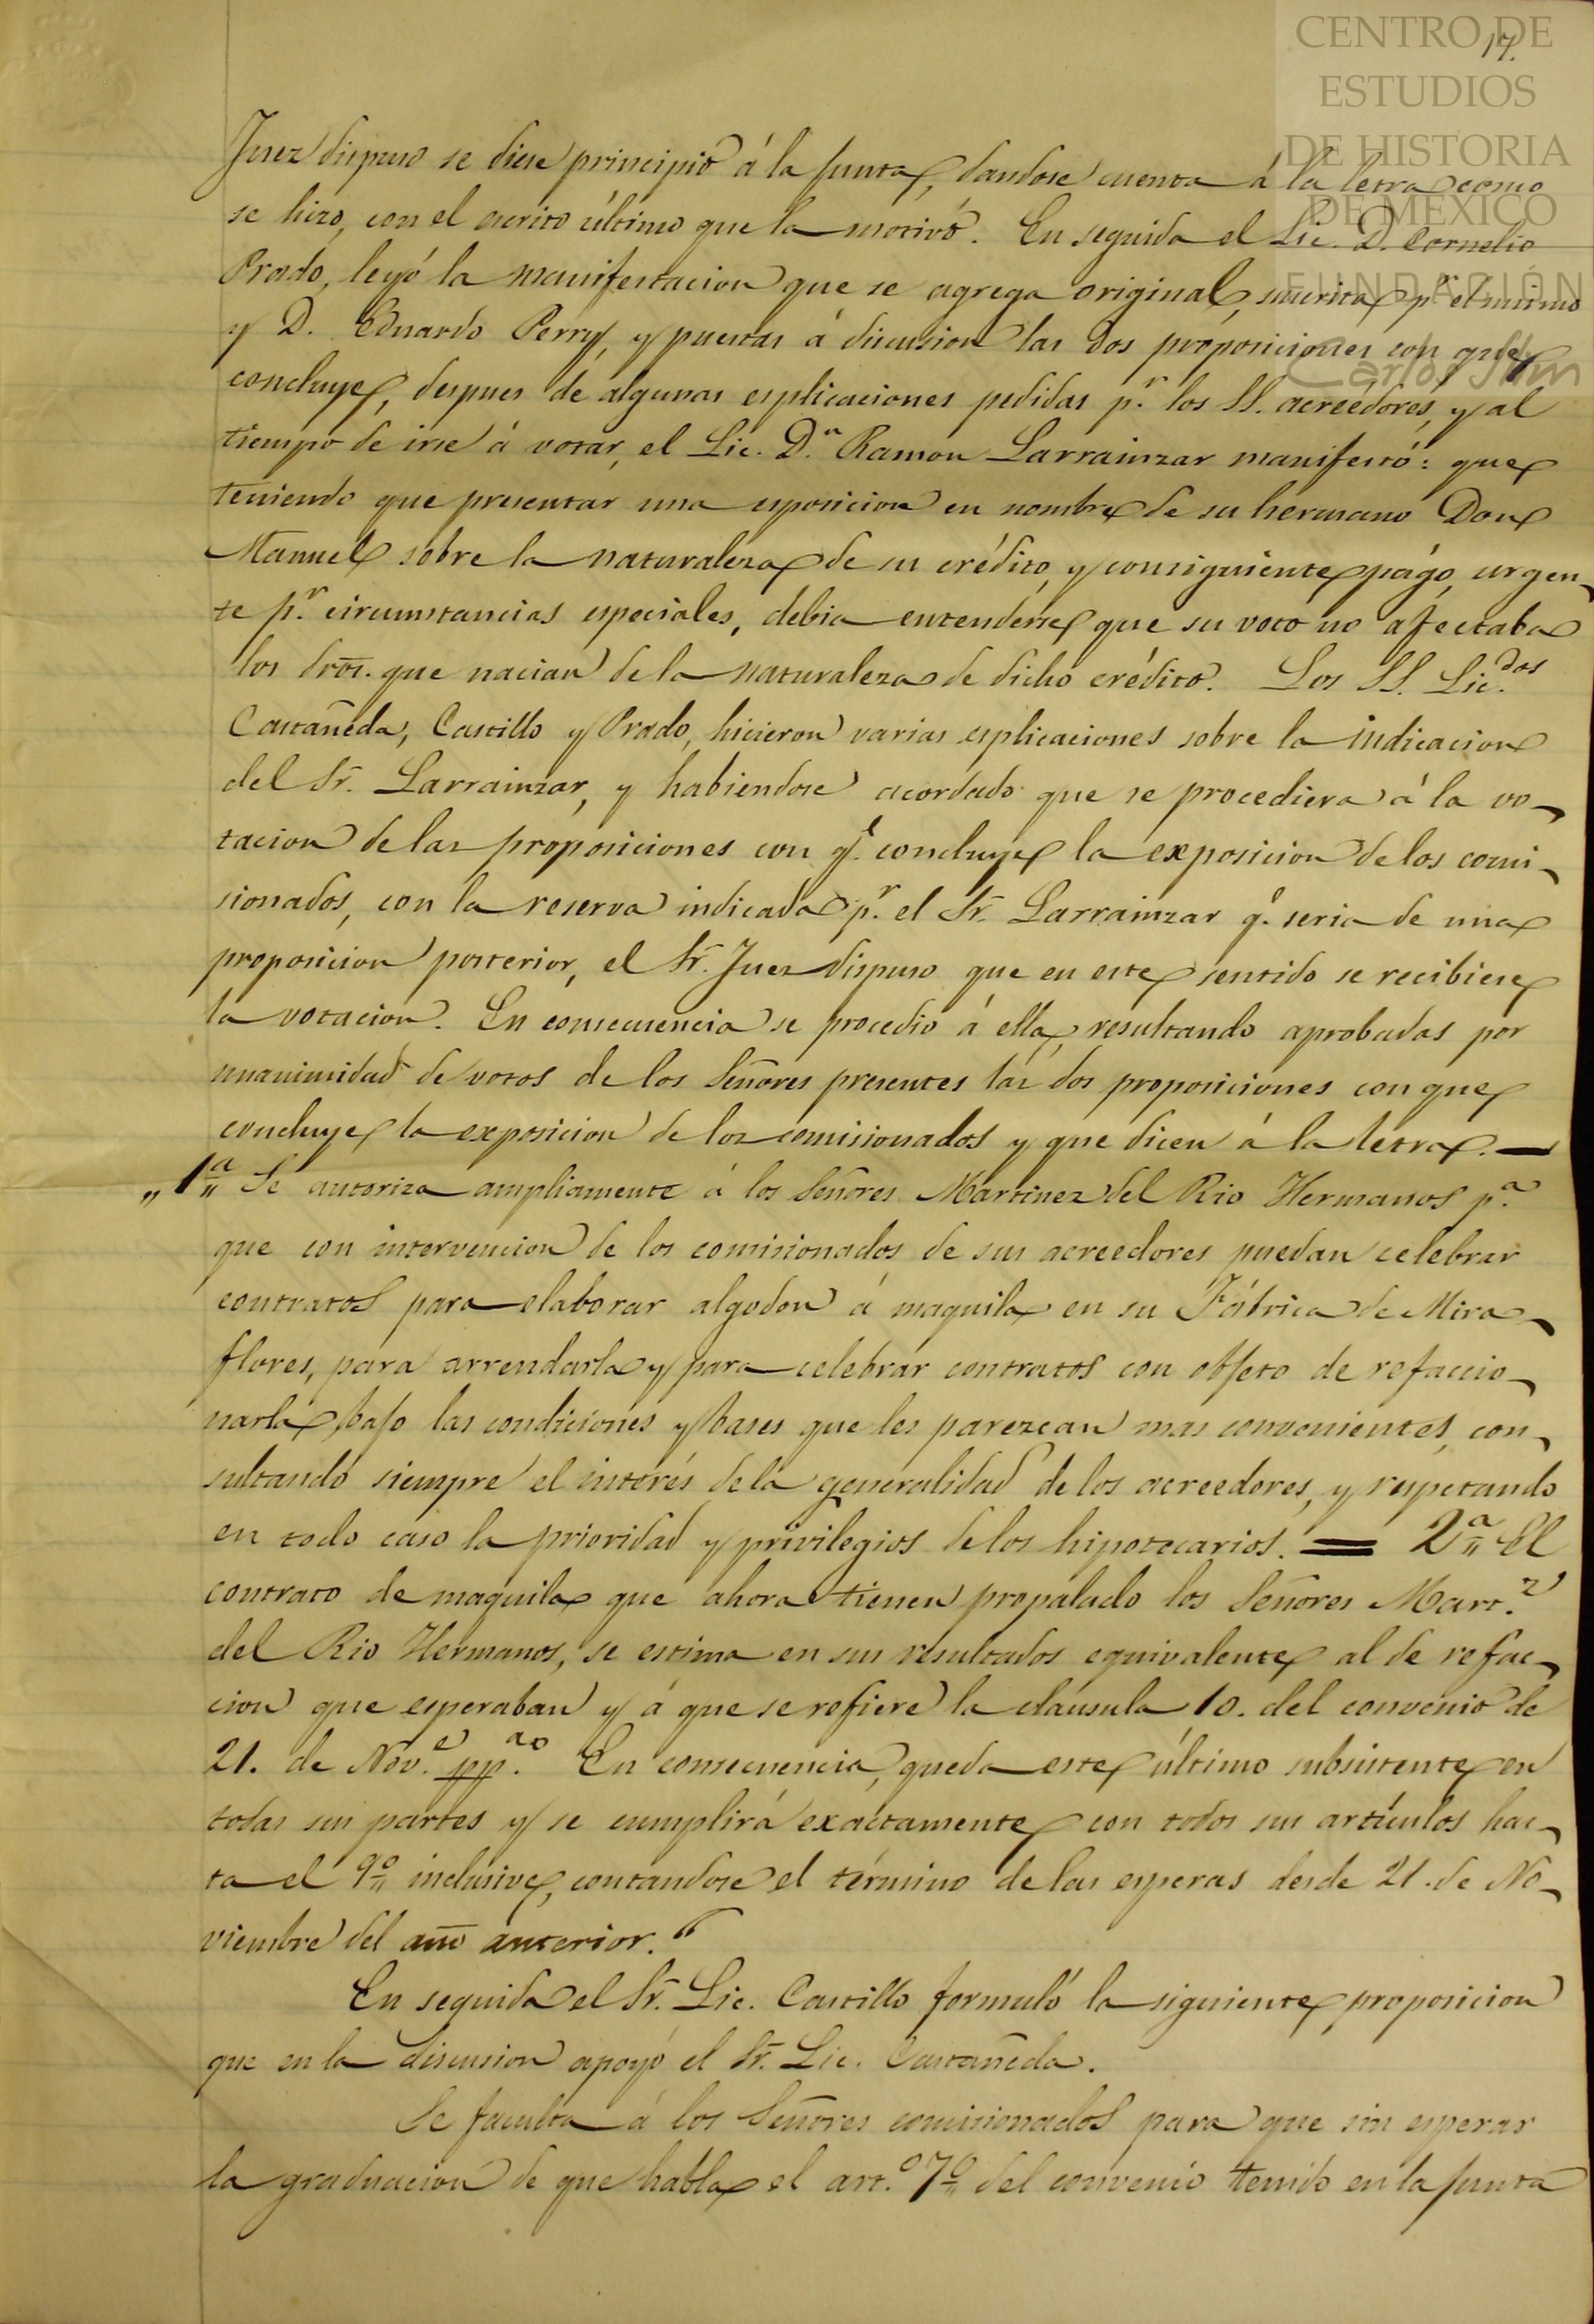 CENTRO DE
ESTUDIOS
DE HISTORIA
DE MEXICO
FUNDACIÓN
Carlos Slim
17.
Juez dispuso se diese principio á la junta, dandose cuenta á la letra como
se hizo, con el escrito último que la motivó. En seguida el Lic. D. Cornelio
Prado, leyó la manifestacion que se agrega original, suscrita pr. el mismo
y D. Eduardo Perry, y puestas á discusion las dos proposiciones con que
concluye, despues de algunas esplicaciones pedidas pr. los SS. acreedores, y al
tiempo de irse á votar, el Lic. Dn. Ramon Larrainzar manifestó: que
teniendo que presentar una esposicion en nombre de su hermano Don
Manuel sobre la naturaleza de su crédito, y consiguiente pago, urgen-
te pr. circumstancias especiales, debia entenderse que su voto no afectaba
los dros. que nacian de la naturaleza de dicho crédito. Los SS. Lic.dos
Castañeda, Castillo y Prado, hicieron varias esplicaciones sobre la indicacion
del Sr. Larrainzar, y habiendose acordado que se procediera á la vo-
tacion de las proposiciones con qe. concluye la exposicion de los comi-
sionados, con la reserva indicada pr. el Sr. Larrainzar qe. seria de una
proposicion posterior, el Sr. Juez dispuso que en este sentido se recibiese
la votacion. En consecuencia se procedio á ella, resultando aprobadas por
unanimidad de votos de los Señores presentes las dos proposiciones con que
concluye la exposicion de los comisionados y que dicen á la letra. —
„1a„ Se autoriza ampliamente á los Señores Martinez del Rio Hermanos pa.
que con intervencion de los comisionados de sus acreedores puedan celebrar
contratos para elaborar algodon á maquila en su Fábrica de Mira-
flores, para arrendarla y para celebrar contratos con objeto de refaccio-
narla, bajo las condiciones y bases que les parezcan mas convenientes, con-
sultando siempre el interés de la generalidad de los acreedores, y respetando
en todo caso la prioridad y privilegios de los hipotecarios. = 2a„ El
contrato de maquila que ahora tienen propalado los Señores Mart.z
del Rio Hermanos, se estima en sus resultados equivalente al de refac-
cion que esperaban y á que se refiere la cláusula 10. del convenio de
21. de Nov.e pp.do En consecuencia, queda este último subsistente en
todas sus partes y se cumplirá exactamente con todos sus artículos has-
ta el 9o„ inclusive, contandose el término de las esperas desde 21. de No-
viembre del año anterior."
En seguida el Sr. Lic. Castillo formuló la siguiente proposicion
que en la discusion apoyó el Sr. Lic. Castañeda.
Se faculta á los Señores comisionados para que sin esperar
la graduacion de que habla el art.o 7o„ del convenio tenido en la junta